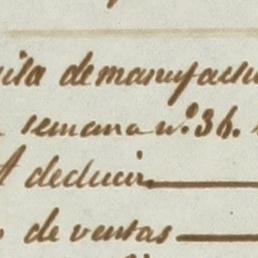 de manufactu
semana nº. 36.
A deducir
de ventas